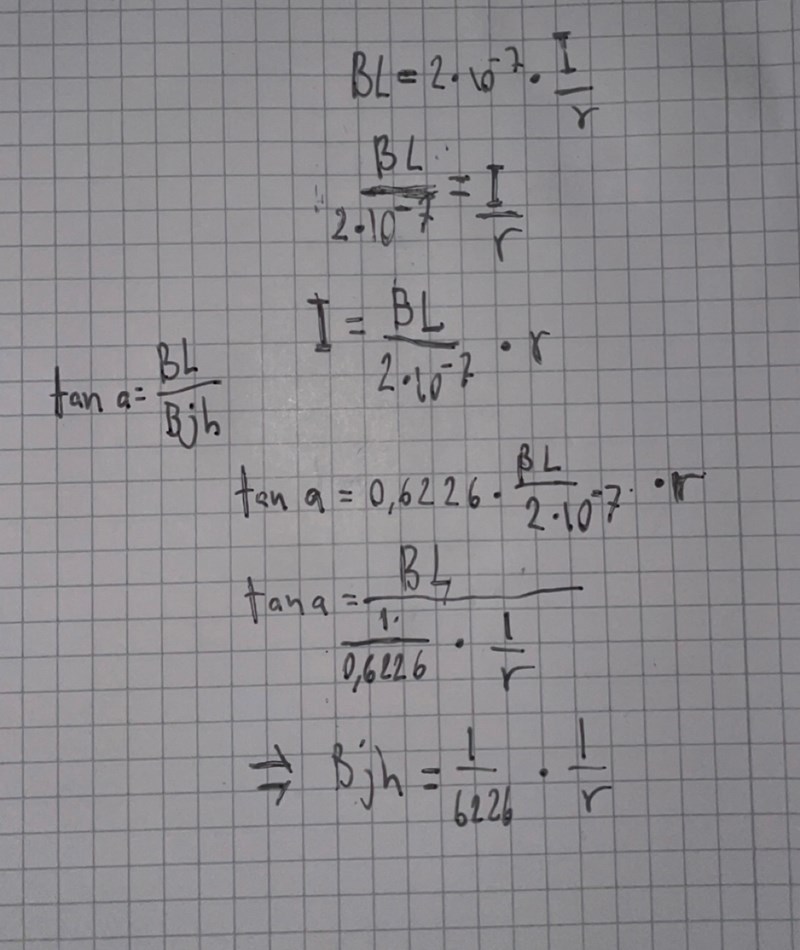 BL = 2 · 10^-7 · I/r
BL/(2·10^-7) = I/r
I = BL/(2·10^-7) · r
tan a = BL/Bjh
tan a = 0,6226 · BL/(2·10^-7) · r
tan a = BL/(1/0,6226 · 1/r)
⇒ Bjh = 1/6226 · 1/r